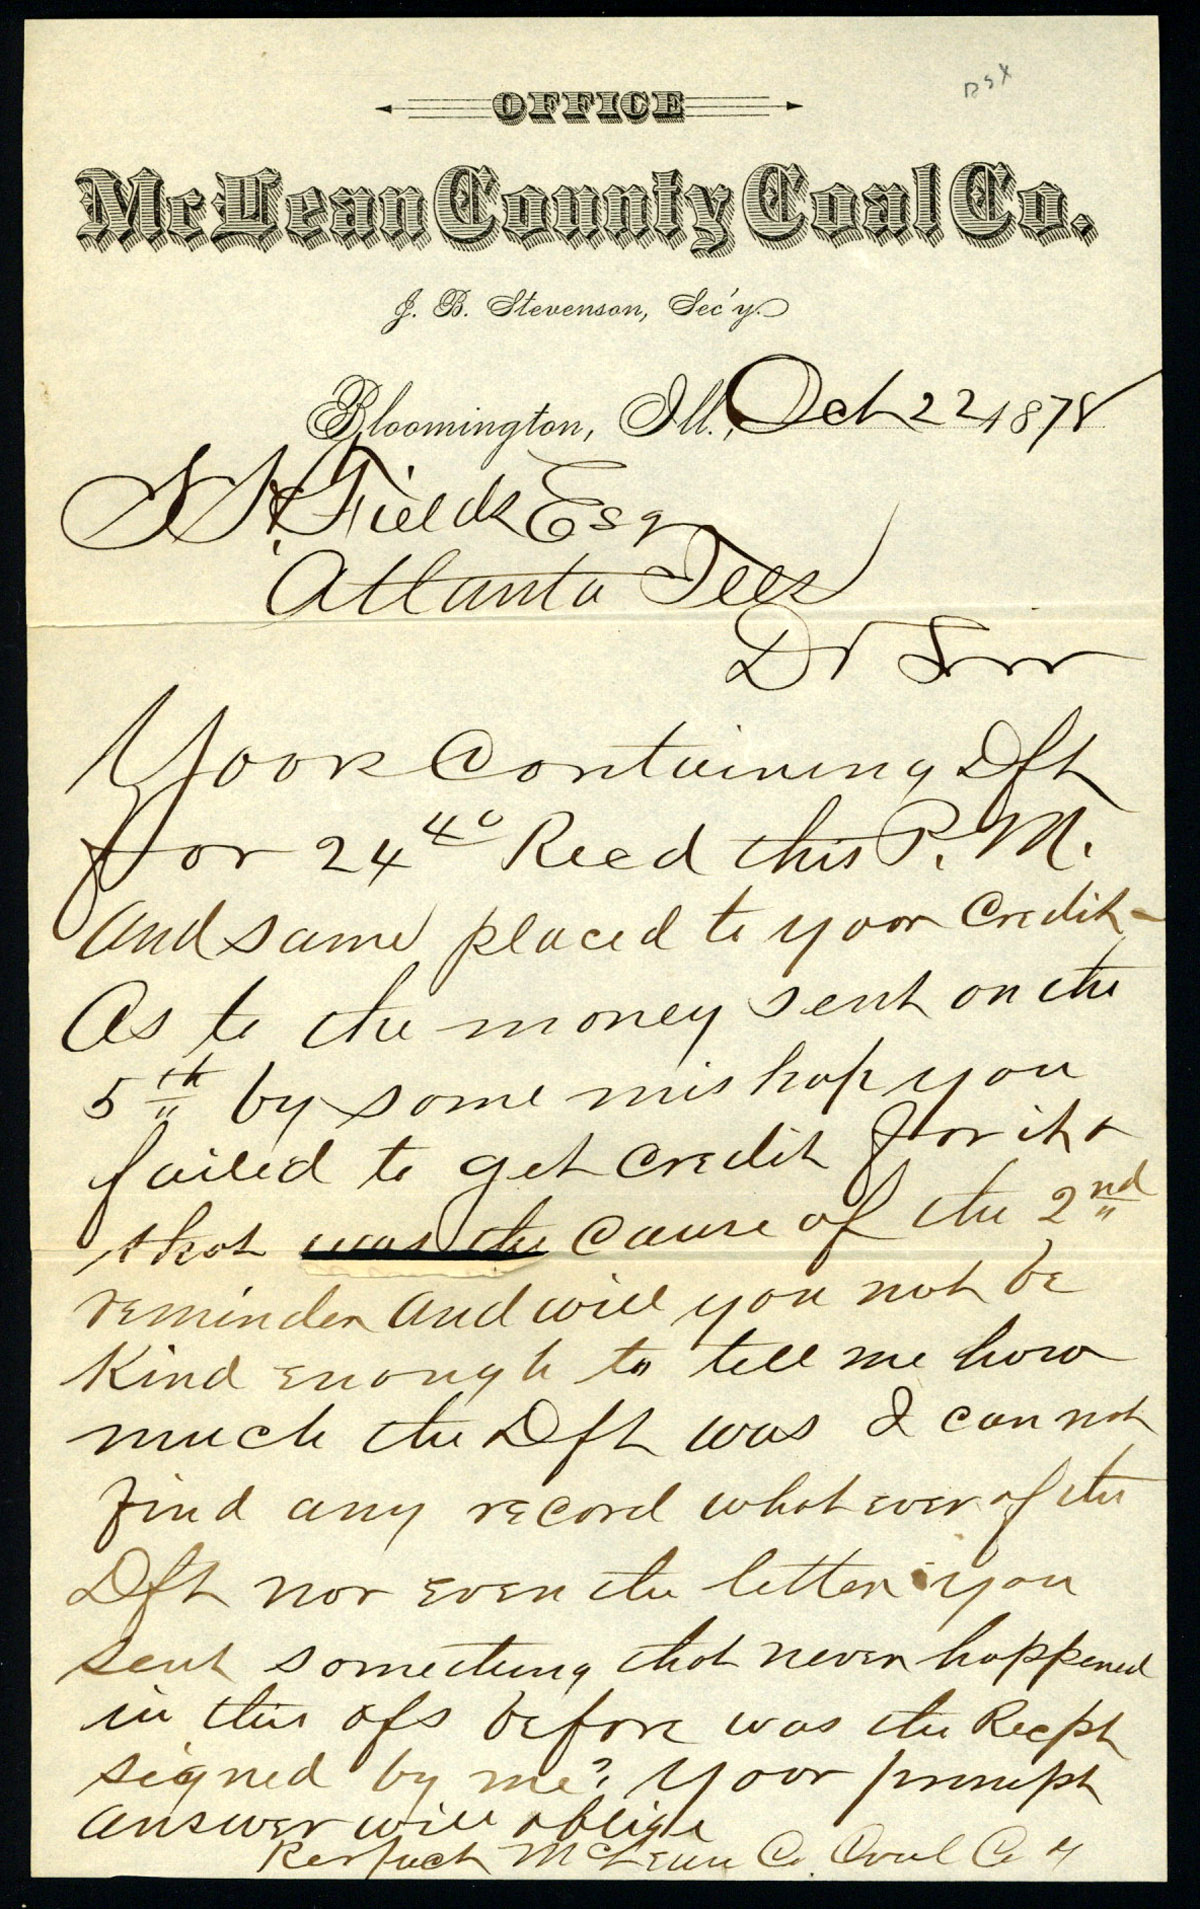 OFFICE
McLean County Coal Co.
J. B. Stevenson, Sec'y.
Bloomington, Ill., Oct 22 1878
H Fields Esq
Atlanta Ills
Dr Sir
Your Containing Dft
for 24 40 Recd this P.M.
and same placed to your credit-
As to the money sent on the
5th by some mishap you
failed to get credit for it &
that was the cause of the 2nd
reminder and will you not be
Kind enough to tell me how
much the Dft was I can not
find any record what ever of the
Dft nor even the letter you
sent something that never happened
in this ofs before was the Recpt
signed by me? Your prompt
answer will oblige
Resptch McLean Co. Coal Co